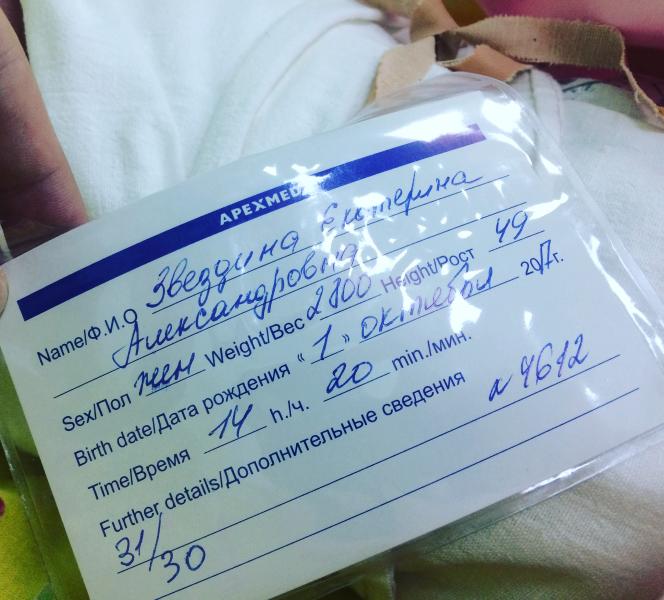 АРЕХМЕД
Name/Ф.И.О Звездина Екатерина
Александровна
Sex/Пол жен Weight/Вес 2800 Height/Рост 49
Birth date/Дата рождения "1" октября 2017г.
Time/Время 14 h./ч. 20 min./мин.
Further details/Дополнительные сведения 4612
31/30